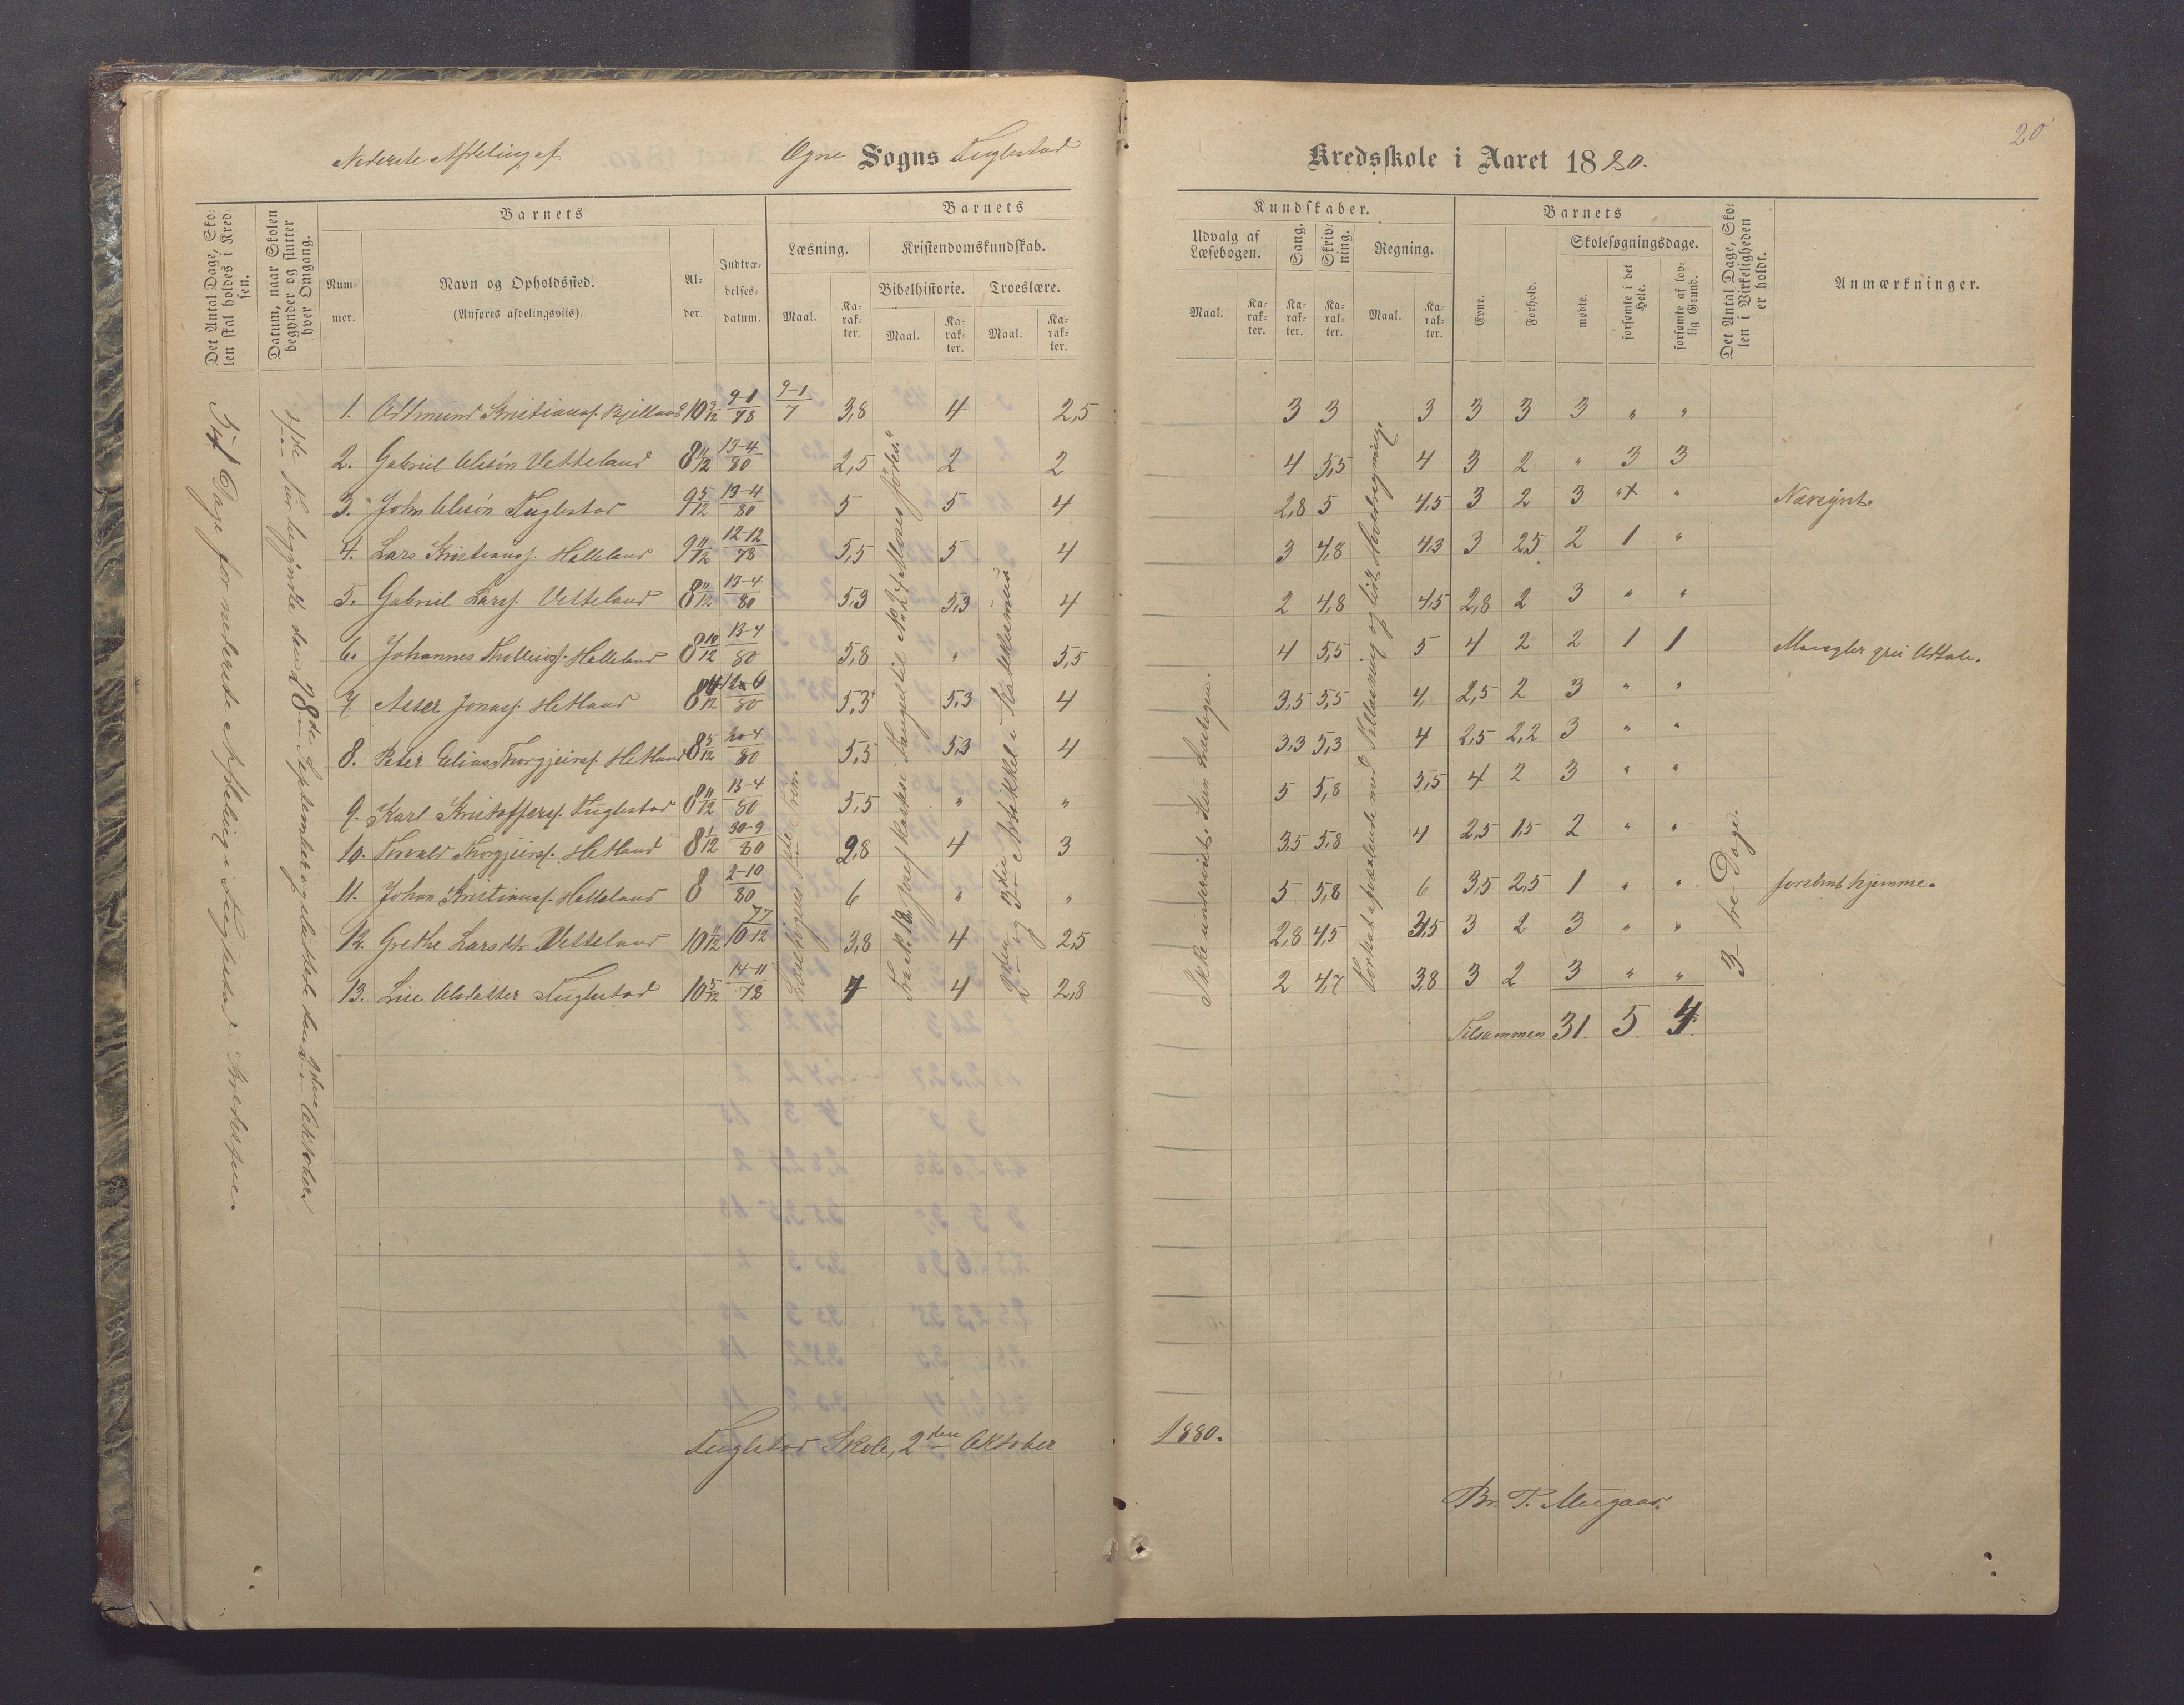 20.
Nederste Afdeling af Ogne Sogns Fuglestad Kredsskole i Aaret 1880.
Det Antal Dage, Sko-
len skal holdes i Kred-
sen.
Datum, naar Skolen
begynder og slutter
hver Omgang.
Barnets
Num-
mer.
Navn og Opholdssted.
(Anføres afdelingsviis).
Al-
der.
Indtræ-
delses-
datum.
Barnets
Læsning.
Maal.
Ka-
rak-
ter.
Kristendomskundskab.
Bibelhistorie.
Maal.
Ka-
rak-
ter.
Troeslære.
Maal.
Ka-
rak-
ter.
Kundskaber.
Udvalg af
Læsebogen.
Maal.
Ka-
rak-
ter.
Sang.
Ka-
rak-
ter.
Skriv-
ning.
Ka-
rak-
ter.
Regning.
Maal.
Ka-
rak-
ter.
Barnets
Evne.
Forhold.
Skolesøgningsdage.
mødte.
forsømte i det
Hele.
forsømte af lov-
lig Grund.
Det Antal Dage, Sko-
len i Virkeligheden
er holdt.
Anmærkninger.
54 Dage for nederste Afdeling i Fuglestad Kredsen.
begyndte den 28de September og sluttede den 2den Oktober.
1. Kristians. 10 3/12 9-1/78 9-1/7 3,8 4 2,5 3 3 3 3 3 3 " "
2. Gabriel Olsøn Vetteland 8 11/12 13-4/80 2,5 2 2 4 5,5 4 3 2 " 3 3
3. John Olsøn Fuglestad 9 5/12 13-4/80 5 5 4 2,8 5 4,5 3 2 3 " " Nærsynt.
4. Lars Kristianss. Helleland 9 11/12 12-12/78 5,5 5 4 3 4,8 4,3 3 2,5 2 1 "
5. Gabriel Larss. Vetteland 8 11/12 13-4/80 5,3 5,3 4 2 4,8 4,5 2,8 2 3 " "
6. Johannes Helleland 8 10/12 13-4/80 5,8 " 5,5 4 5,5 5 4 2 2 1 1 Mangler
7. Asser Jonass. Hetland 8 80 5,3 5,3 4 3,5 5,5 4 2,5 2 3 " "
8. Peter Elias Thorgjeirss. Hetland 8 5/12 20-4/80 5,5 5,3 4 3,3 5,3 4 2,5 2,2 3 " "
9. Karl Kristofferss. Fuglestad 8 11/12 13-4/80 5,5 " " 5 5,8 5,5 4 2 3 " "
10. Thorgjeirss. Hetland 8 1/12 30-9/80 2,8 4 3 3,5 5,8 4 2,5 1,5 2 " "
11. Johan Kristianss. Helleland 8 2-10/80 6 " " 5 5,8 6 3,5 2,5 1 " " hjemme.
12. Grethe Larsdtr Vetteland 10 11/12 77/10-12 3,8 4 2,5 2,8 4,5 3,5 3 2 3 " "
13. Lise Olsdatter Fuglestad 10 5/12 14-11/78 4 4 2,8 2 4,7 3,8 3 2 3 " "
2den og 3die Artikkel i Katekismus
3 tre Dage.
Tilsammen 31. 5. 4.
Fuglestad Skole, 2den Oktober 1880.